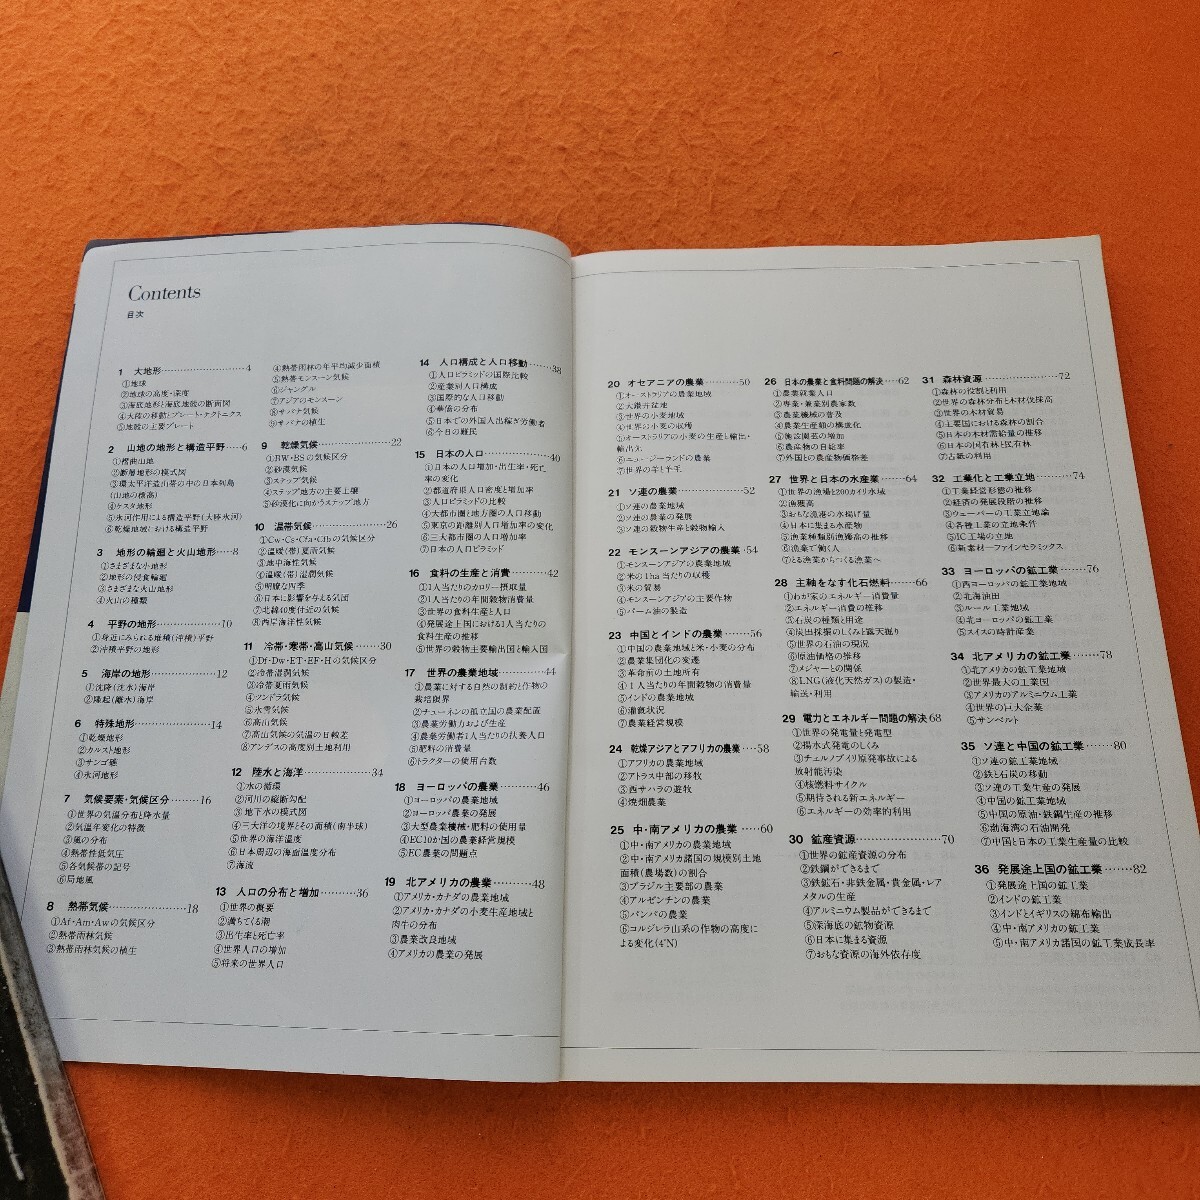 Contents
目次
1 大地形……………4
①地球
②地球の高度・深度
③海底地形と海底地殻の断面図
④大陸の移動とプレート・テクトニクス
⑤地殻の主要プレート
2 山地の地形と構造平野…6
①褶曲山地
②断層地形の模式図
③環太平洋造山帯の中の日本列島
(山地の横高)
④ケスタ地形
⑤氷河作用による構造平野(大陸氷河)
⑥乾燥地域における構造平野
3 地形の輪廻と火山地形……8
①さまざまな小地形
②地形の侵食輪廻
③さまざまな火山地形
④火山の種類
4 平野の地形……………10
①身近にみられる堆積(沖積)平野
②沖積平野の地形
5 海岸の地形……………12
①沈降(沈水)海岸
②隆起(離水)海岸
6 特殊地形……………14
①乾燥地形
②カルスト地形
③サンゴ礁
④氷河地形
7 気候要素・気候区分………16
①世界の気温分布と降水量
②気温年変化の特徴
③風の分布
④熱帯性低気圧
⑤各気候帯の記号
⑥局地風
8 熱帯気候……………18
①Af・Am・Awの気候区分
②熱帯雨林気候
③熱帯雨林気候の植生
④熱帯雨林の年平均減少面積
⑤熱帯モンスーン気候
⑥ジャングル
⑦アジアのモンスーン
⑧サバナ気候
⑨サバナの植生
9 乾燥気候……………22
①BW・BSの気候区分
②砂漠気候
③ステップ気候
④ステップ地方の主要土壌
⑤砂漠化に向かうステップ地方
10 温帯気候……………26
①Cw・Cs・Cfa・Cfbの気候区分
②温暖(帯)夏雨気候
③地中海性気候
④温暖(帯)湿潤気候
⑤明瞭な四季
⑥日本に影響を与える気団
⑦北緯40度付近の気候
⑧西岸海洋性気候
11 冷帯・寒帯・高山気候……30
①Df・Dw・ET・EF・Hの気候区分
②冷帯湿潤気候
③冷帯夏雨気候
④ツンドラ気候
⑤氷雪気候
⑥高山気候
⑦高山気候の気温の日較差
⑧アンデスの高度別土地利用
12 陸水と海洋……………34
①水の循環
②河川の縦断勾配
③地下水の模式図
④三大洋の境界とその面積(南半球)
⑤世界の海洋温度
⑥日本周辺の海面温度分布
⑦海流
13 人口の分布と増加………36
①世界の概要
②満ちてくる潮
③出生率と死亡率
④世界人口の増加
⑤将来の世界人口
14 人口構成と人口移動………38
①人口ピラミッドの国際比較
②産業別人口構成
③国際的な人口移動
④華僑の分布
⑤日本での外国人出稼ぎ労働者
⑥今日の難民
15 日本の人口……………40
①日本の人口増加・出生率・死亡
率の変化
②都道府県人口密度と増加率
③人口ピラミッドの比較
④大都市圏と地方圏の人口移動
⑤東京の距離別人口増加率の変化
⑥三大都市圏の人口増加率
⑦日本の人口ピラミッド
16 食料の生産と消費………42
①1人当たりのカロリー摂取量
②1人当たりの年間穀物消費量
③世界の食料生産と人口
④発展途上国における1人当たりの
食料生産の推移
⑤世界の穀物主要輸出国と輸入国
17 世界の農業地域…………44
①農業に対する自然の制約と作物の
栽培限界
②チューネンの孤立国の農業配置
③農業労働力および生産
④農業労働者1人当たりの扶養人口
⑤肥料の消費量
⑥トラクターの使用台数
18 ヨーロッパの農業…………46
①ヨーロッパの農業地域
②ヨーロッパ農業の発展
③大型農業機械・肥料の使用量
④EC10か国の農業経営規模
⑤EC農業の問題点
19 北アメリカの農業…………48
①アメリカ・カナダの農業地域
②アメリカ・カナダの小麦生産地域と
肉牛の分布
③農業改良地域
④アメリカの農業の発展
20 オセアニアの農業…………50
①オーストラリアの農業地域
②大鑽井盆地
③世界の小麦地域
④世界の小麦の収穫
⑤オーストラリアの小麦の生産と輸出・
輸出先
⑥ニュージーランドの農業
⑦世界の羊と羊毛
21 ソ連の農業……………52
①ソ連の農業地域
②ソ連の農業の発展
③ソ連の穀物生産と穀物輸入
22 モンスーンアジアの農業・54
①モンスーンアジアの農業地域
②米の1ha当たりの収穫
③米の貿易
④モンスーンアジアの主要作物
⑤パーム油の製造
23 中国とインドの農業………56
①中国の農業地域と米・小麦の分布
②農業集団化の変遷
③革命前の土地所有
④1人当たりの年間穀物の消費量
⑤インドの農業地域
⑥灌漑状況
⑦農業経営規模
24 乾燥アジアとアフリカの農業……58
①アフリカの農業地域
②アトラス中部の移牧
③西サハラの遊牧
④焼畑農業
25 中・南アメリカの農業……60
①中・南アメリカの農業地域
②中・南アメリカ諸国の規模別土地
面積(農場数)の割合
③ブラジル主要部の農業
④アルゼンチンの農業
⑤パンパの農業
⑥コルジレラ山系の作物の高度に
よる変化(4°N)
26 日本の農業と食料問題の解決……62
①農業就業人口
②専業・兼業別農家数
③農業機械の普及
④農業生産額の構成化
⑤施設園芸の増加
⑥農産物の自給率
⑦外国との農産物価格差
27 世界と日本の水産業………64
①世界の漁場と200カイリ水域
②漁獲高
③おもな漁港の水揚げ量
④日本に集まる水産物
⑤漁業種類別漁獲高の推移
⑥漁業で働く人
⑦とる漁業からつくる漁業へ
28 主軸をなす化石燃料………66
①わが家のエネルギー消費量
②エネルギー消費の推移
③石炭の種類と用途
④炭田採掘のしくみと露天掘り
⑤世界の石油の現況
⑥原油価格の推移
⑦メジャーとの関係
⑧LNG(液化天然ガス)の製造・
輸送・利用
29 電力とエネルギー問題の解決 68
①世界の発電量と発電型
②揚水式発電のしくみ
③チェルノブイリ原発事故による
放射能汚染
④核燃料サイクル
⑤期待される新エネルギー
⑥エネルギーの効率的利用
30 鉱産資源……………70
①世界の鉱産資源の分布
②鉄鋼ができるまで
③鉄鉱石・非鉄金属・貴金属・レア
メタルの生産
④アルミニウム製品ができるまで
⑤深海底の鉱物資源
⑥日本に集まる資源
⑦おもな資源の海外依存度
31 森林資源……………72
①森林の役割と利用
②世界の森林分布と木材伐採高
③世界の木材貿易
④主要国における森林の割合
⑤日本の木材需給量の推移
⑥日本の国有林と民有林
⑦古紙の利用
32 工業化と工業立地…………74
①工業経営形態の推移
②経済の発展段階の推移
③ウェーバーの工業立地論
④各種工業の立地条件
⑤IC工場の立地
⑥新素材―ファインセラミックス
33 ヨーロッパの鉱工業………76
①西ヨーロッパの鉱工業地域
②北海油田
③ルール工業地域
④北ヨーロッパの鉱工業
⑤スイスの時計産業
34 北アメリカの鉱工業………78
①北アメリカの鉱工業地域
②世界最大の工業国
③アメリカのアルミニウム工業
④世界の巨大企業
⑤サンベルト
35 ソ連と中国の鉱工業………80
①ソ連の鉱工業地域
②鉄と石炭の移動
③ソ連の工業生産の発展
④中国の鉱工業地域
⑤中国の原油・鉄鋼生産の推移
⑥渤海湾の石油開発
⑦中国と日本の工業生産量の比較
36 発展途上国の鉱工業………82
①発展途上国の鉱工業
②インドの鉱工業
③インドとイギリスの綿布輸出
④中・南アメリカの鉱工業
⑤中・南アメリカ諸国の鉱工業成長率